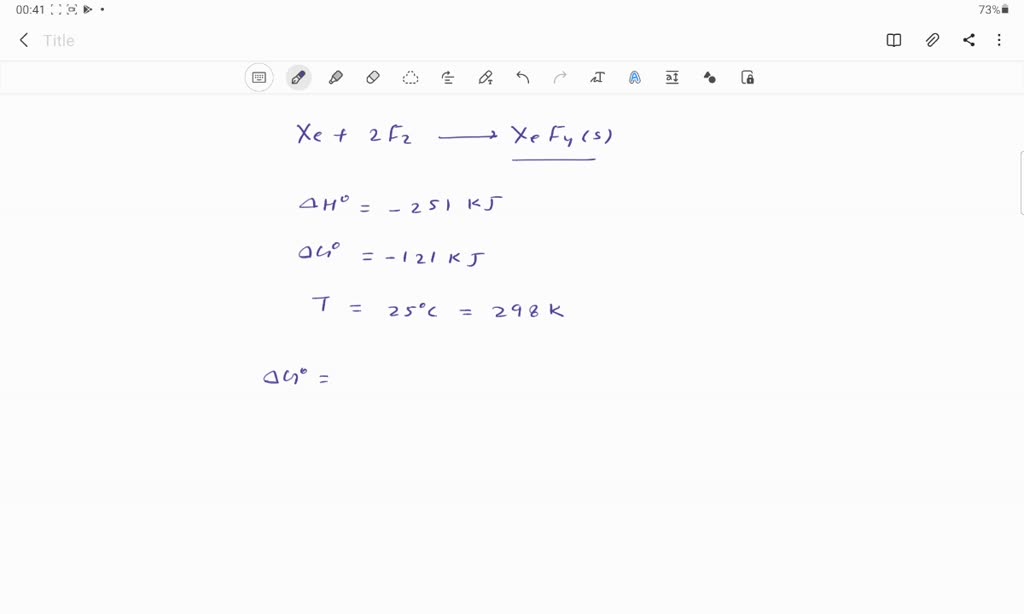 00:41 73%
Title
Xe + 2F₂ ⟶ XeF₄(s)
ΔH° = -251 KJ
ΔG° = -121 KJ
T = 25°C = 298 K
ΔG° =